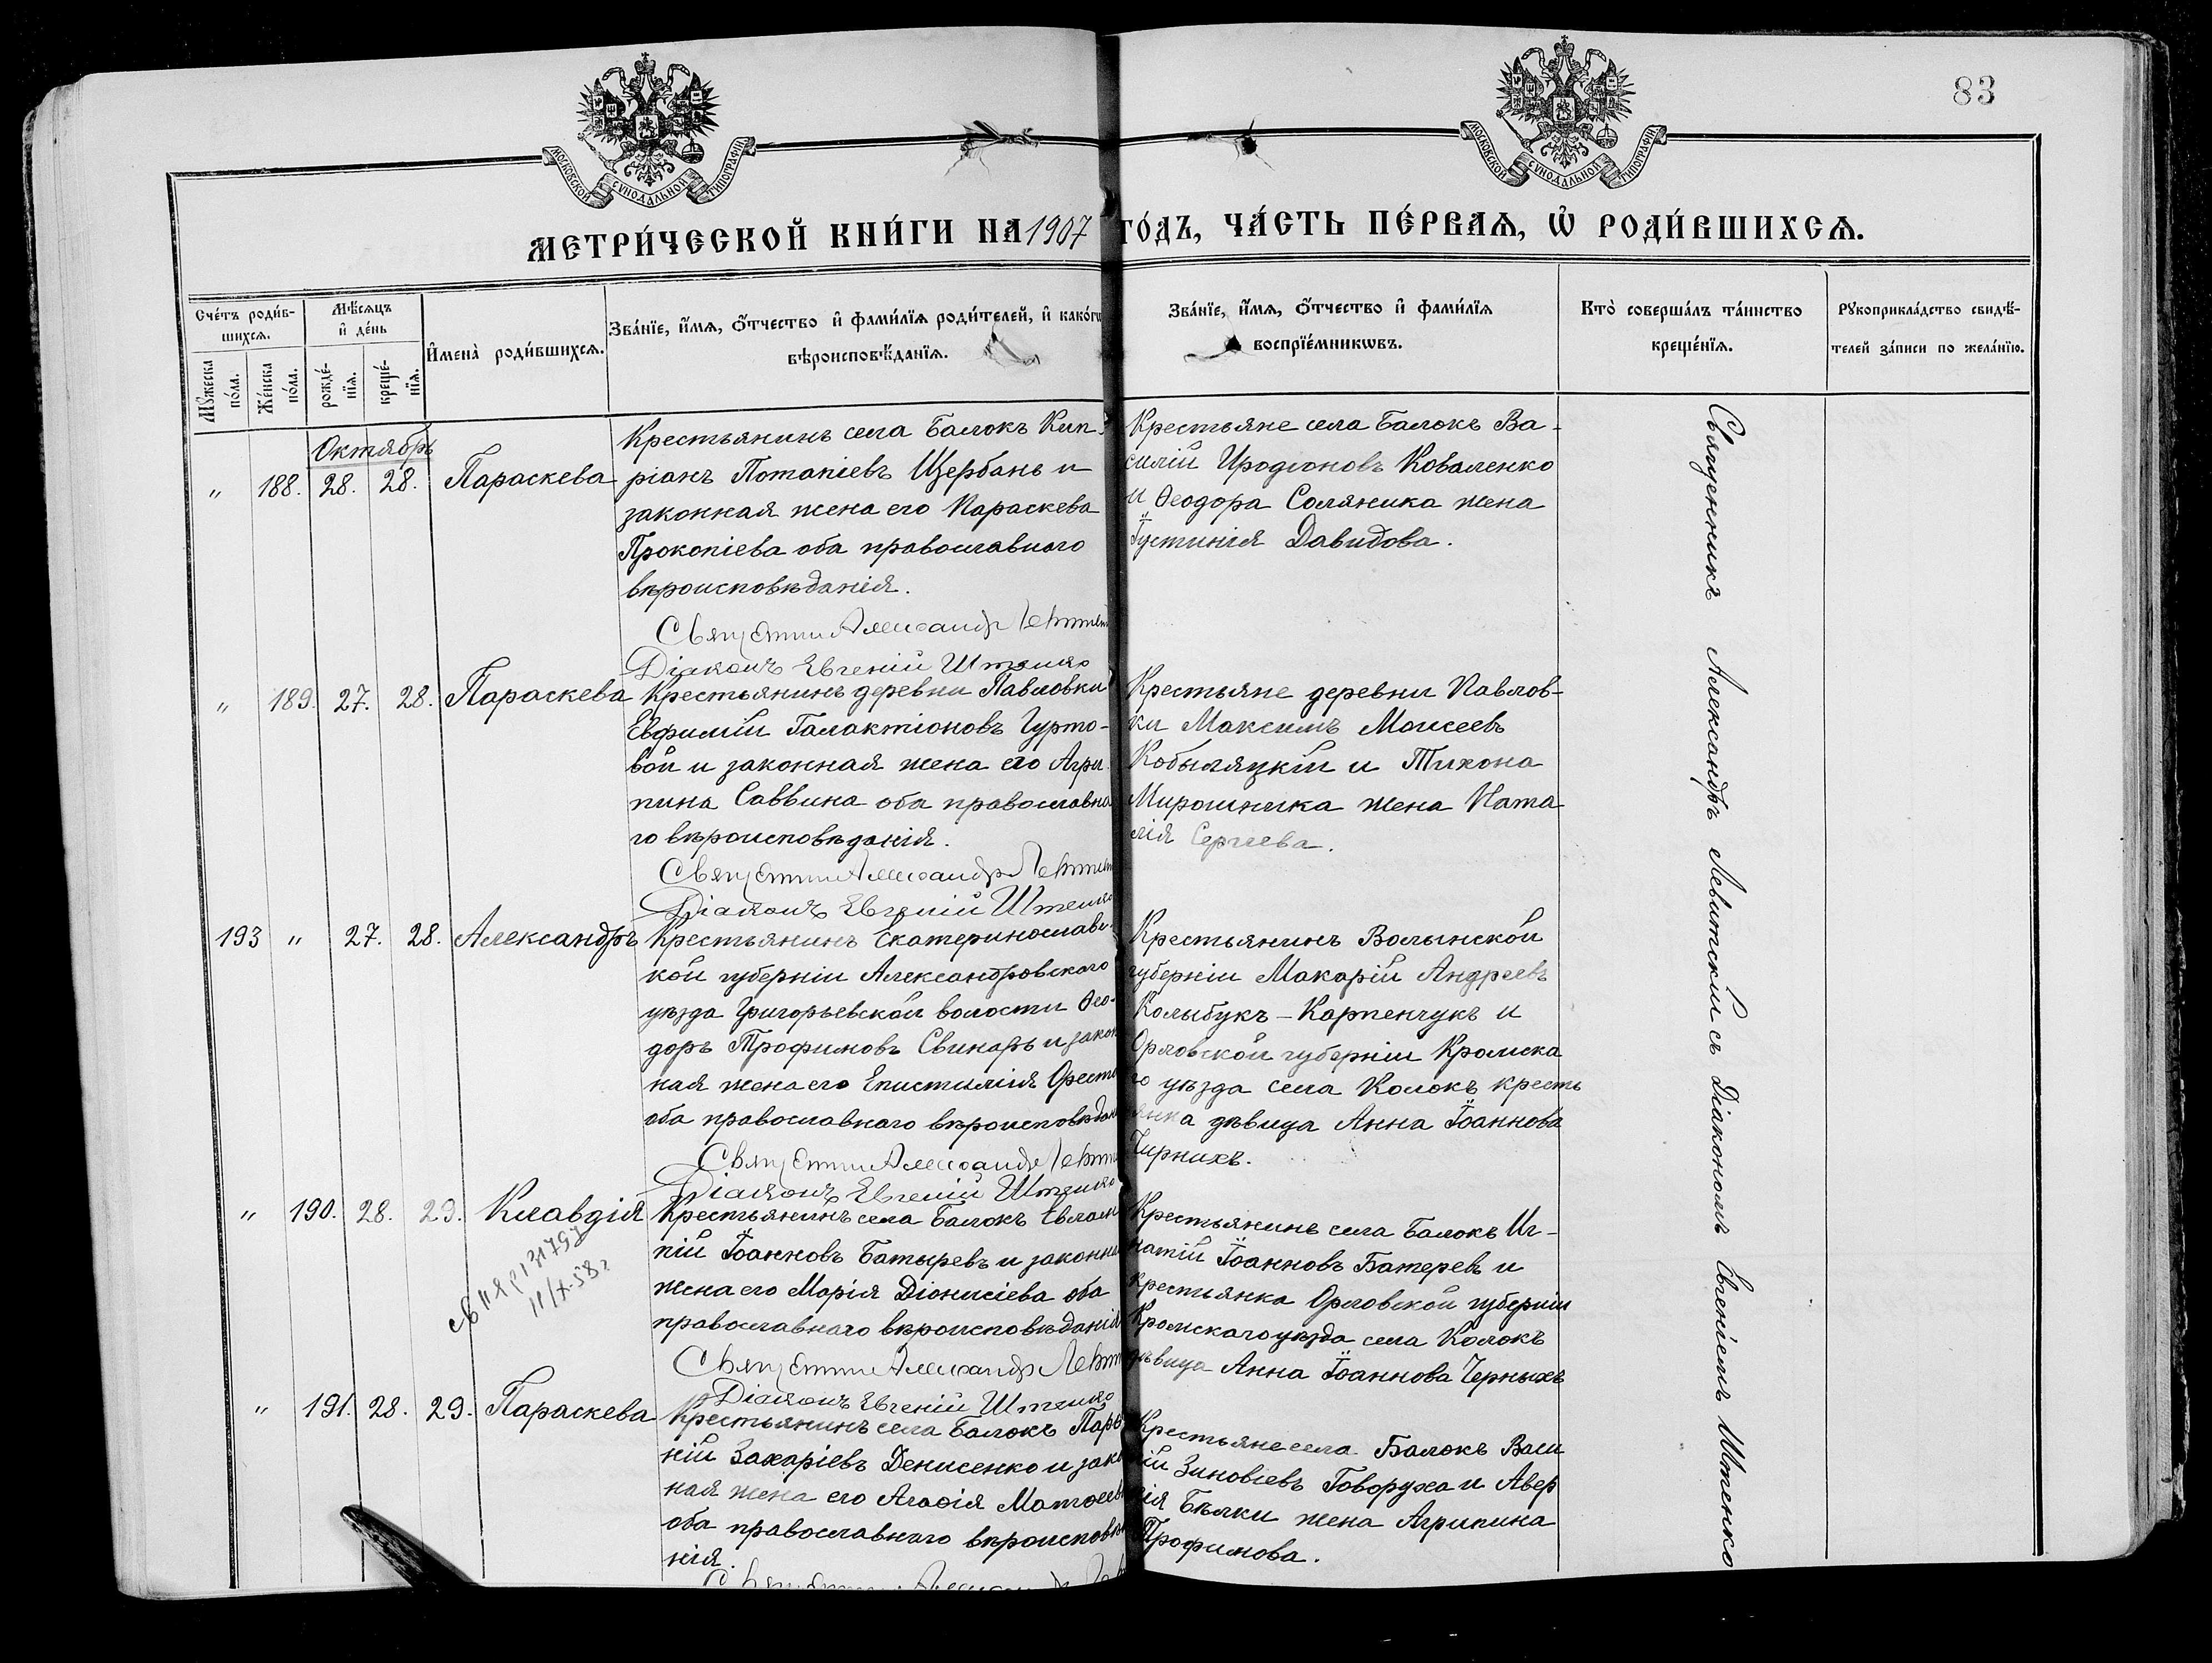 83
МОСКОВСКОЙ СУНОДАЛЬНОЙ ТИПОГРАФІИ
МОСКОВСКОЙ СУНОДАЛЬНОЙ ТИПОГРАФІИ
МЕТРИ́ЧЕСКОЙ КНИ́ГИ НА 1907 ГО́ДЪ, ЧА́СТЬ ПЕ́РВАѦ, Ѡ҆ РОДИ́ВШИХСѦ.
Сче́тъ роди́в-
шихсѧ.
Мꙋ́жеска по́ла.
Же́нска по́ла.
Мѣ́сяцъ
и҆ де́нь
рожде́-
нїѧ.
креще́-
нїѧ.
И҆мена̀ роди́вшихсѧ.
Зва́нїе, и҆́мѧ, ѻ҆́тчество и҆ фами́лїѧ роди́телей, и҆ како́гѡ
вѣроисповѣ́данїѧ.
Зва́нїе, и҆́мѧ, ѻ҆́тчество и҆ фами́лїѧ
воспрїе́мникѡвъ.
Кто̀ соверша́лъ та́инство
креще́нїѧ.
Рꙋкоприкла́дство свидѣ́-
телей за́писи по жела́нїю.
Октябрь
" 188. 28. 28. Параскева
Крестьянинъ села Балокъ Кип-
ріанъ Потапіевъ Щербань и
законная жена его Параскева
Прокопіева оба православного
вѣроисповѣданія.
Священникъ Александръ
Діаконъ Евгеній Штенко
Крестьяне села Балокъ Ва-
силій Иродіоновъ Коваленко
и Ѳеодора Соляника жена
Іустинія Давидова.
" 189. 27. 28. Параскева
Крестьянинъ деревни Павловки
Евфимій Галактіоновъ Гурто-
вой и законная жена его Агри
пина Саввина оба православна
го вѣроисповѣданія.
Священникъ Александръ
Діаконъ Евгеній Штенко
Крестьяне деревни Павлов-
ки Максимъ Моисеевъ
Кобыляцкій и Тихона
Мирошника жена Ната
лія Сергеева.
193 " 27. 28. Александръ
Крестьянинъ Екатеринославс-
кой губерніи Александровского
уѣзда Григорьевской волости Ѳео-
доръ Трофимовъ Свинарь и закон
ная жена его Епистимія Орест
оба православного вѣроисповѣдан
Священникъ Александръ
Діаконъ Евгеній Штенко
Крестьянинъ Волынской
губерніи Макарій Андреевъ
Колыбукъ-Карпенчукъ и
Орловской губерніи Кромска
го уѣзда села Колокъ кресть
янка дѣвица Анна Іоаннова
Чирнихъ.
" 190. 28. 29. Клавдія
11/X-58г
Крестьянинъ села Балокъ Евлам
пій Іоанновъ Батыревъ и законна
жена его Марія Діонисіева оба
православнаго вѣроисповѣданія
Священникъ Александръ
Діаконъ Евгеній Штенко
Крестьянинъ села Балокъ Иг-
натій Іоанновъ Батеревъ и
крестьянка Орловской губерніи
Кромскаго уѣзда села Колокъ
дѣвица Анна Іоаннова Черныхъ
" 191. 28. 29. Параскева
Крестьянинъ села Балокъ Парѳ
ній Захаріевъ Денисенко и зако
ная жена его Агаѳія Матѳеев
оба православнаго вѣроисповѣ
нія.
Крестьяне села Балокъ Васи
лій Зиновіевъ Говоруха и Авер
кія Бѣлки жена Агрипина
Трофимова.
Священникъ Александръ Левитскій съ Діакономъ Евгеніемъ Штенко